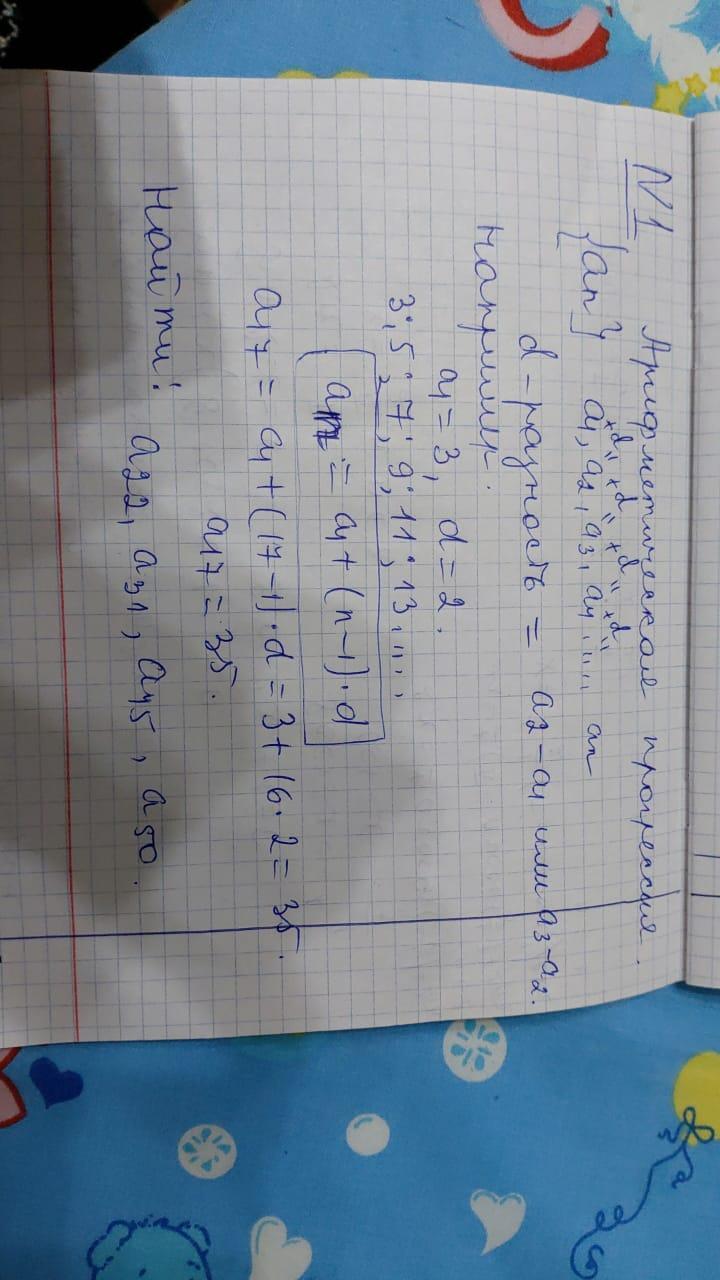 N1 Арифметическая прогрессия.
+d +d +d +d
{an} a1, a2, a3, a4 .... an
d - разность = a2 - a1 или a3 - a2.
Например.
a1 = 3, d = 2.
3; 5; 7; 9; 11; 13....
an = a1 + (n-1)·d
a17 = a1 + (17-1)·d = 3 + 16·2 = 35.
a17 = 35.
Найти: a22, a31, a45, a50.